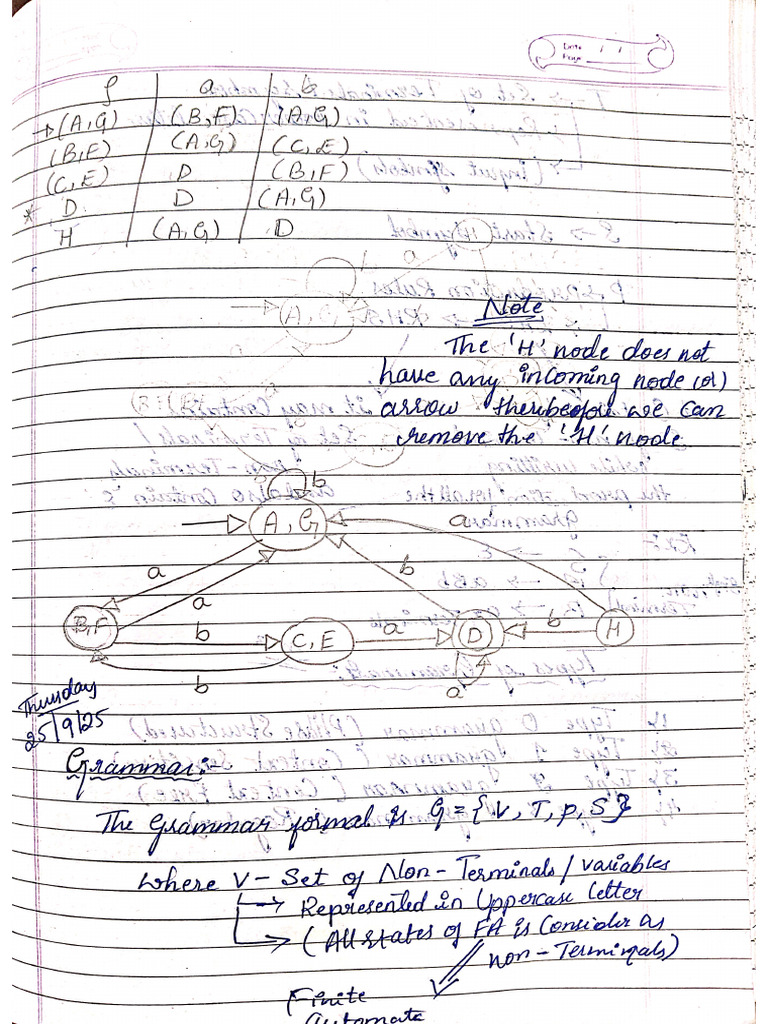 Date
Page
δ a b
→(A,G) (B,F) (A,G)
(B,F) (A,G) (C,E)
(C,E) D (B,F)
* D D (A,G)
H (A,G) D
Note
The 'H' node does not
have any incoming node (or)
arrow therebefore we can
remove the 'H' node
b
A, G
a
a
b
a
B,F
b
C, E
a
D
b
H
b
a
Thursday
25/9/25
Grammar:-
The Grammar formal is G = { V, T, P, S }
Where V - Set of Non-Terminals / variables
→ Represented in Uppercase letter
→ (All states of FA is Consider as
non-Terminals)
Finite
Automata